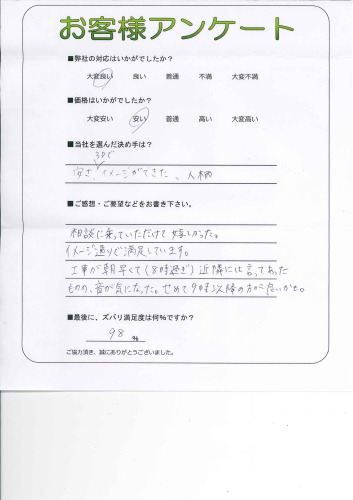 お客様アンケート
■弊社の対応はいかがでしたか?
大変良い 良い 普通 不満 大変不満
■価格はいかがでしたか?
大変安い 安い 普通 高い 大変高い
■当社を選んだ決め手は?
3Dで
安さ、イメージができた、人柄
■ご感想・ご要望などをお書き下さい。
相談に乗っていただけて嬉しかった。
イメージ通りで満足しています。
工事が朝早くて(8時過ぎ)近隣には言ってあった
ものの、音が気になった。せめて9時以降の方が良いかも。
■最後に、ズバリ満足度は何%ですか?
98 %
ご協力頂き、誠にありがとうございました。